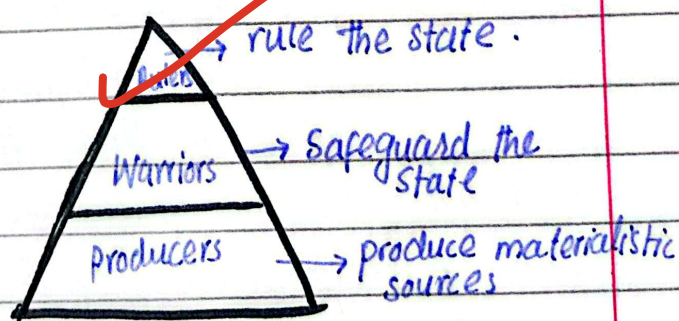 rule the state.
Rulers
Warriors
Safeguard the
state
Producers
produce materialistic
sources